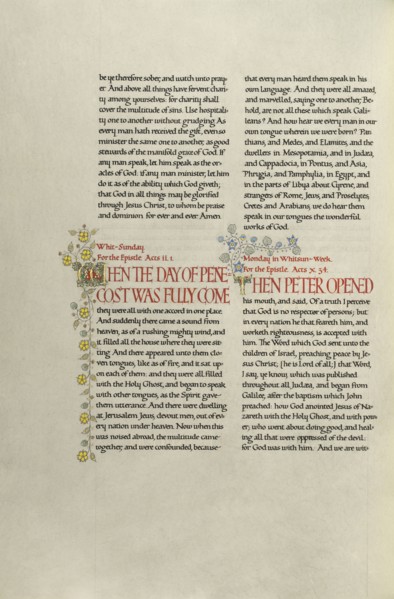 be ye therefore sober, and watch unto pray-
er. And above all things have fervent chari-
ty among yourselves: for charity shall
cover the multitude of sins. Use hospitali-
ty one to another without grudging. As
every man hath received the gift, even so
minister the same one to another, as good
stewards of the manifold grace of God. If
any man speak, let him speak as the ora-
cles of God: if any man minister, let him
do it as of the ability which God giveth;
that God in all things may be glorified
through Jesus Christ; to whom be praise
and dominion for ever and ever. Amen.
Whit-Sunday
For the Epistle. Acts II. 1.
WHEN THE DAY OF PENE-
COST WAS FULLY COME
they were all with one accord in one place.
And suddenly there came a sound from
heaven, as of a rushing mighty wind, and
it filled all the house where they were sit-
ting. And there appeared unto them clo-
ven tongues, like as of fire, and it sat up-
on each of them: and they were all filled
with the Holy Ghost, and began to speak
with other tongues, as the Spirit gave
them utterance. And there were dwelling
at Jerusalem Jews, devout men, out of ev-
ery nation under heaven. Now when this
was noised abroad, the multitude came
together, and were confounded, because
that every man heard them speak in his
own language. And they were all amazed,
and marvelled, saying one to another, Be-
hold, are not all these which speak Gali-
leans? And how hear we every man in our
own tongue wherein we were born? Par-
thians, and Medes, and Elamites, and the
dwellers in Mesopotamia, and in Judæa,
and Cappadocia, in Pontus, and Asia,
Phrygia, and Pamphylia, in Egypt, and
in the parts of Libya about Cirene, and
strangers of Rome, Jews, and Proselytes,
Cretes and Arabians, we do hear them
speak in our tongues the wonderful
works of God.
Monday in Whitsun-Week.
For the Epistle. Acts X. 34.
THEN PETER OPENED
his mouth, and said, Of a truth I perceive
that God is no respecter of persons; but
in every nation he that feareth him, and
worketh righteousness, is accepted with
him. The Word which God sent unto the
children of Israel, preaching peace by Je-
sus Christ; [he is Lord of all;] that Word,
I say, ye know, which was published
throughout all Judæa, and began from
Galilee, after the baptism which John
preached: how God anointed Jesus of Na-
zareth with the Holy Ghost, and with pow-
er; who went about doing good, and heal-
ing all that were oppressed of the devil:
for God was with him. And we are wit-